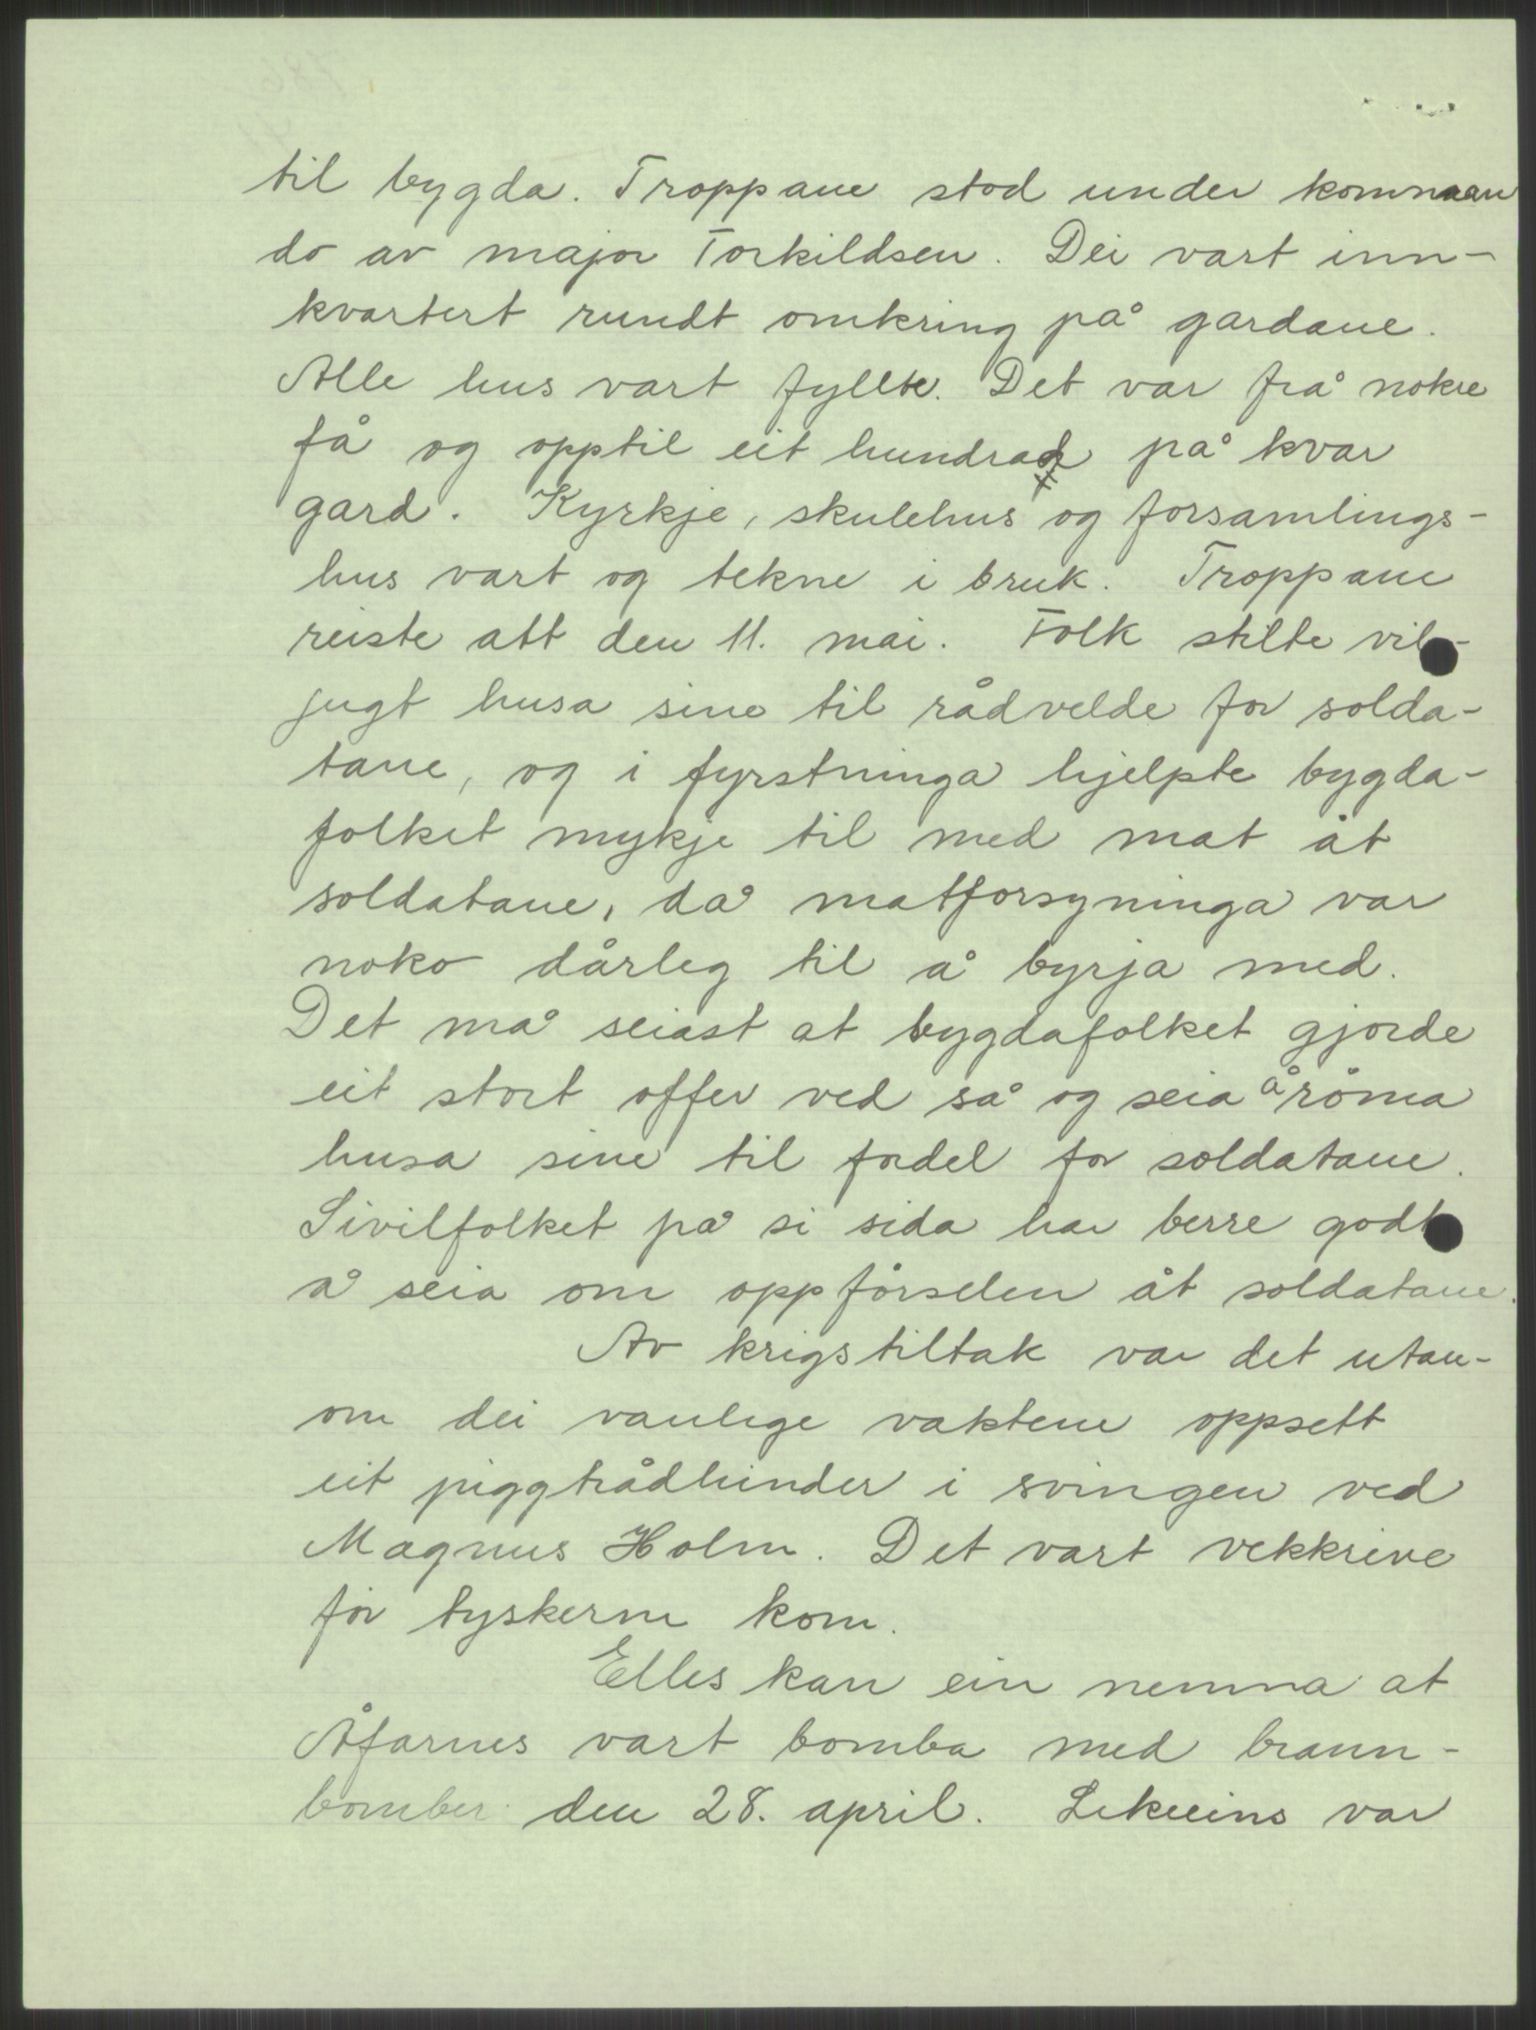 til bygda. Troppane stod under komman
do av major Torkildsen. Dei vart inn-
kvartert rundt omkring på gardane.
Alle hus vart fyllte. Det var frå nokre
få og opptil eit hundrad på kvar
gard. Kyrkje, skulehus og forsamlings-
hus vart og tekne i bruk. Troppane
reiste att den 11. mai. Folk stilte vil-
jugt husa sine til rådvelde for solda-
tane, og i fyrstninga hjelpte bygda-
folket mykje til med mat åt
soldatane, då matforsyninga var
noko dårleg til å byrja med.
Det må seiast at bygdafolket gjorde
eit stort offer ved så og seia å röma
husa sine til fordel for soldatane.
Sivilfolket på si sida har berre godt
å seia om oppförselen åt soldatane.
Av krigstiltak var det utan-
om dei vanlege vaktene oppsett
eit piggtrådhinder i svingen ved
Magnus Holm. Det vart vekkreive
för tyskerne kom.
Elles kan ein nemna at
Åfarnes vart bomba med brann-
bomber den 28. april. Likeeins var